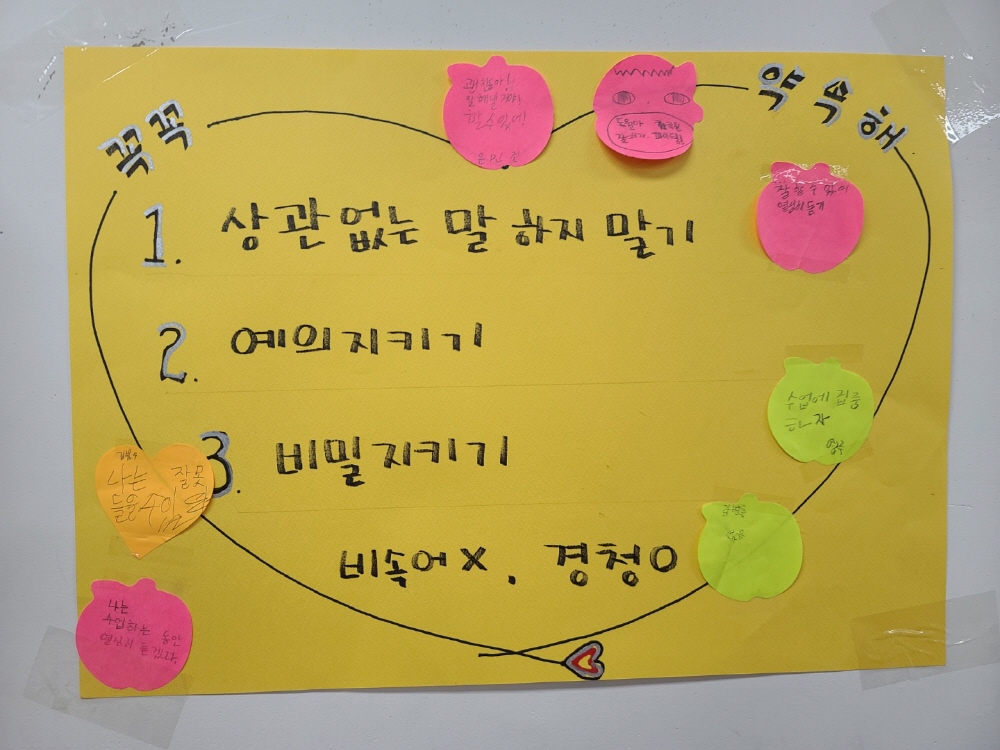 꼭꼭 약속해
1. 상관없는 말 하지 말기
2. 예의지키기
3. 비밀지키기
비속어X, 경청O
괜찮아!!
할수있어!
잘 할 수 있어
열심히 듣기
수업에 집중
하자
나는 잘못
들을수업
나는
수업하는 동안
열심히 듣겠다.